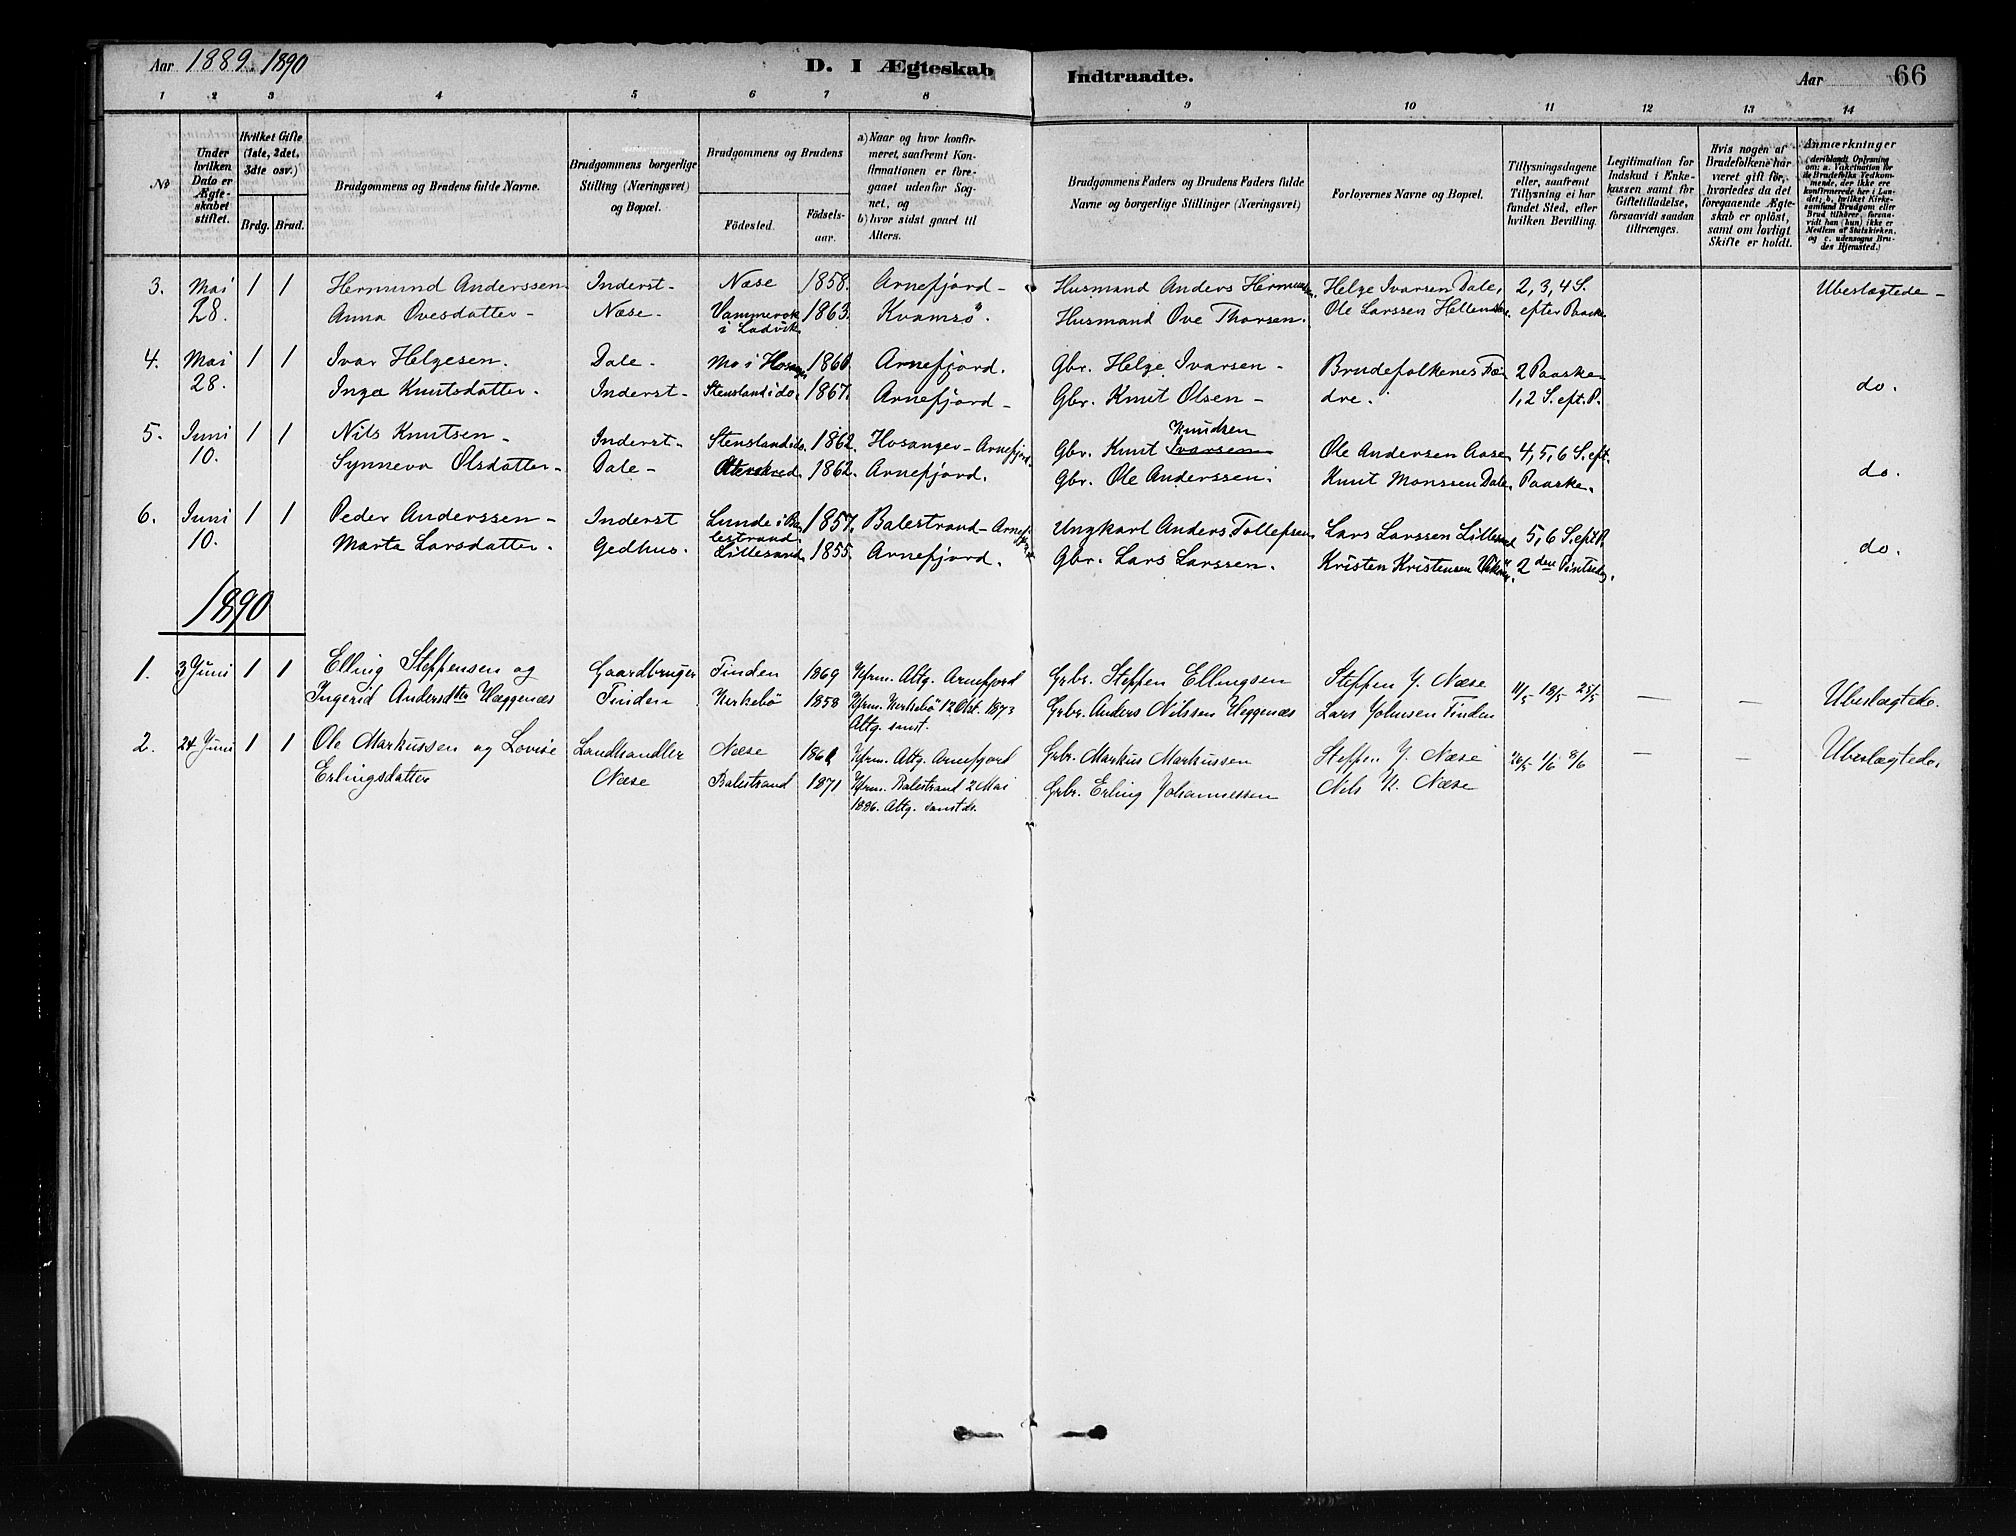 Aar 1889. 1890
D. I Ægteskab Indtraadte.
Aar 66
1 2 3 4 5 6 7 8 9 10 11 12 13 14
No
Under hvilken Dato er Ægteskabet stiftet.
Hvilket Gifte (1ste, 2det, 3die osv.)
Brdg. Brud.
Brudgommens og Brudens fulde Navne.
Brudgommens borgerlige Stilling (Næringsvei) og Bopæl.
Brudgommens og Brudens
Födested.
Födselsaar.
a) Naar og hvor konfirmeret, saafremt Konfirmationen er foregaaet udenfor Sognet, og
b) hvor sidst gaaet til Alters.
Brudgommens Faders og Brudens Faders fulde Navne og borgerlige Stillinger (Næringsvei)
Forloveres Navne og Bopæl.
Tillysningsdagene eller, saafremt Tillysning ei har fundet Sted, efter hvilken Bevilling.
Legitimation for Indskud i Enkekassen samt for Giftetilladelse, forsaavidt saadan tiltrænges.
Hvis nogen af Brudefolkene har været gift før, hvorledes da det foregaaende Ægteskab er opløst, samt om lovligt Skifte er holdt.
Anmærkninger
(deriblandt Oplysning om: a. Vakcination for de Brudefolks Vedkommende, der ikke ere konfirmerede her i Landet; b. hvilket Kirkesamfund Brudgom eller Brud tilhörer, forsaavidt han (hun) ikke er Medlem af Statskirken, og c. udensogns Brudes Hjemsted.)
3. Mai 1 1 Hermund Anderssen Inderst - Næse 1858. Arnefjord - Husmand Anders Hermundsen. Helge Ivarsen Dale, 2, 3, 4 S. Ubeslægtede -
28. Anna Ovesdatter - Næse - i Ladvik 1863. Kvamsö. Husmand Ove Thorsen. Ole Larssen efter Paaske
4. Mai 1 1 Ivar Helgesen. Dale - Mo i Hosanger Arnefjord. Gbr. Helge Ivarsen - Brudefolkenes Fæ- 2 Paaske
28. Inga Knutsdatter - Inderst - Stensland i do. 1867. Arnefjord - Gbr. Knut Olsen - dre. 1, 2 S. eft. P. do.
5. Juni 1 1 Nils Knutsen - Inderst - Stensland i do. 1862. Hosanger - Arnefjord. Gbr. Knut Ivarsen Knudsen Ole Andersen Aase 4, 5, 6 S. eft.
10. Synneva Olsdatter - Dale - 1862. Arnefjord. Gbr. Ole Anderssen. Knut Monssen Dale. Paaske. do.
6. Juni 1 1 Peder Anderssen - Inderst Lunde i Balestrand. 1857. Balestrand - Arnefjord Ungkarl Anders Tollefsen Lars Larssen Lillesand 5, 6 S. eft P.
10. Marta Larsdatter. Gedhus. Lillesand 1855. Arnefjord. Gbr. Lars Larssen. Kristen Kristensen 2den Pintsedag. do.
1890
1. 3 Juni 1 1 Elling Steffensen og Gaardbruger Finden 1869 Kfrm. Altg. Arnefjord Grbr. Steffen Ellingsen Steffen J. Næse 11/5 18/5 25/5 — — Ubeslægtede.
Ingerid Andersdtr Hæggenæs Finden Kirkebö 1858 Kfrm. Kirkebö 12 Okt. 1873 Altg. samst. Grbr. Anders Nilssen Hæggenæs Lars Johnsen Finden
2. 24 Juni 1 1 Ole Markussen og Lovise Landhandler Næse Kfrm. Altg. Arnefjord Grbr. Markus Markussen Steffen J. Næse 26/5 1/6 8/6 — — Ubeslægtede.
Erlingsdatter Næse Balestrand 1871 Kfrm. Balestrand 2 Mai 1886. Altg. samst ds. Grbr. Erling Johannessen Nils K. Næse